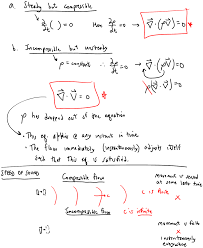 a. Steady but compressible
∂/∂t ( ) = 0 then ∂ρ/∂t = 0 → ∇⃗·(ρV⃗) = 0 *
b. Incompressible but unsteady
ρ = constant ∴ ∂ρ/∂t = 0 → ∇⃗·(ρV⃗) = 0
ρ(∇⃗·V⃗) = 0
∇⃗·V⃗ = 0 *
ρ has dropped out of the equation
• This eq. applies @ any instant in time
• The flow immediately (instantaneously) adjusts itself
such that this eq. is satisfied.
SPEED OF SOUND
Compressible flow
c is finite
at some later time
Incompressible flow
c is infinite
instantaneously
everywhere